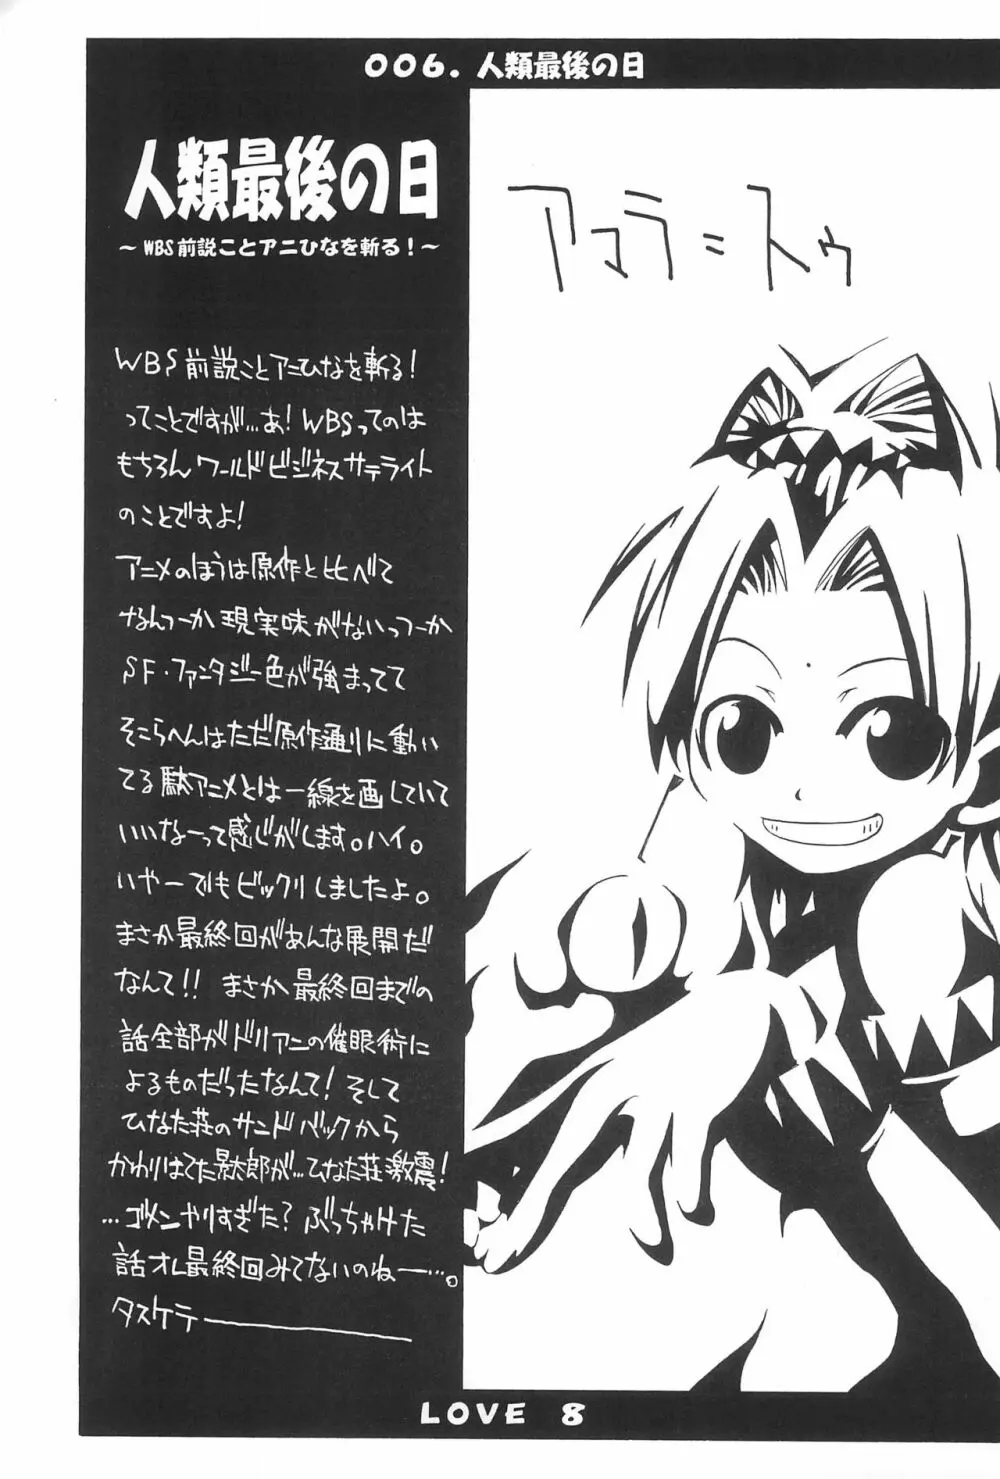 006. 人類最後の日
人類最後の日
～WBS前説ことアニひなを斬る！～
WBS前説ことアニひなを斬る！
ってことですが…あ！WBSってのは
もちろんワールドビジネスサテライト
のことですよ！
アニメのほうは原作と比べて
なんつーか現実味がないっつーか
SF・ファンタジー色が強まってて
そこらへんはただ原作通りに動い
てる駄アニメとは一線を画していて
いいなーって感じがします。ハイ。
いやーでもビックリしましたよ。
まさか最終回があんな展開だ
なんて！！まさか最終回までの
話全部がドリアニの催眠術に
よるものだったなんて！そして
ひなた荘のサンドバックから
かわりはてた景太郎が…ひなた荘激震！
…ゴメンやりすぎた？ぶっちゃけた
話オレ最終回みてないのねー…。
タスケテー
アマラ＝トゥ
LOVE 8